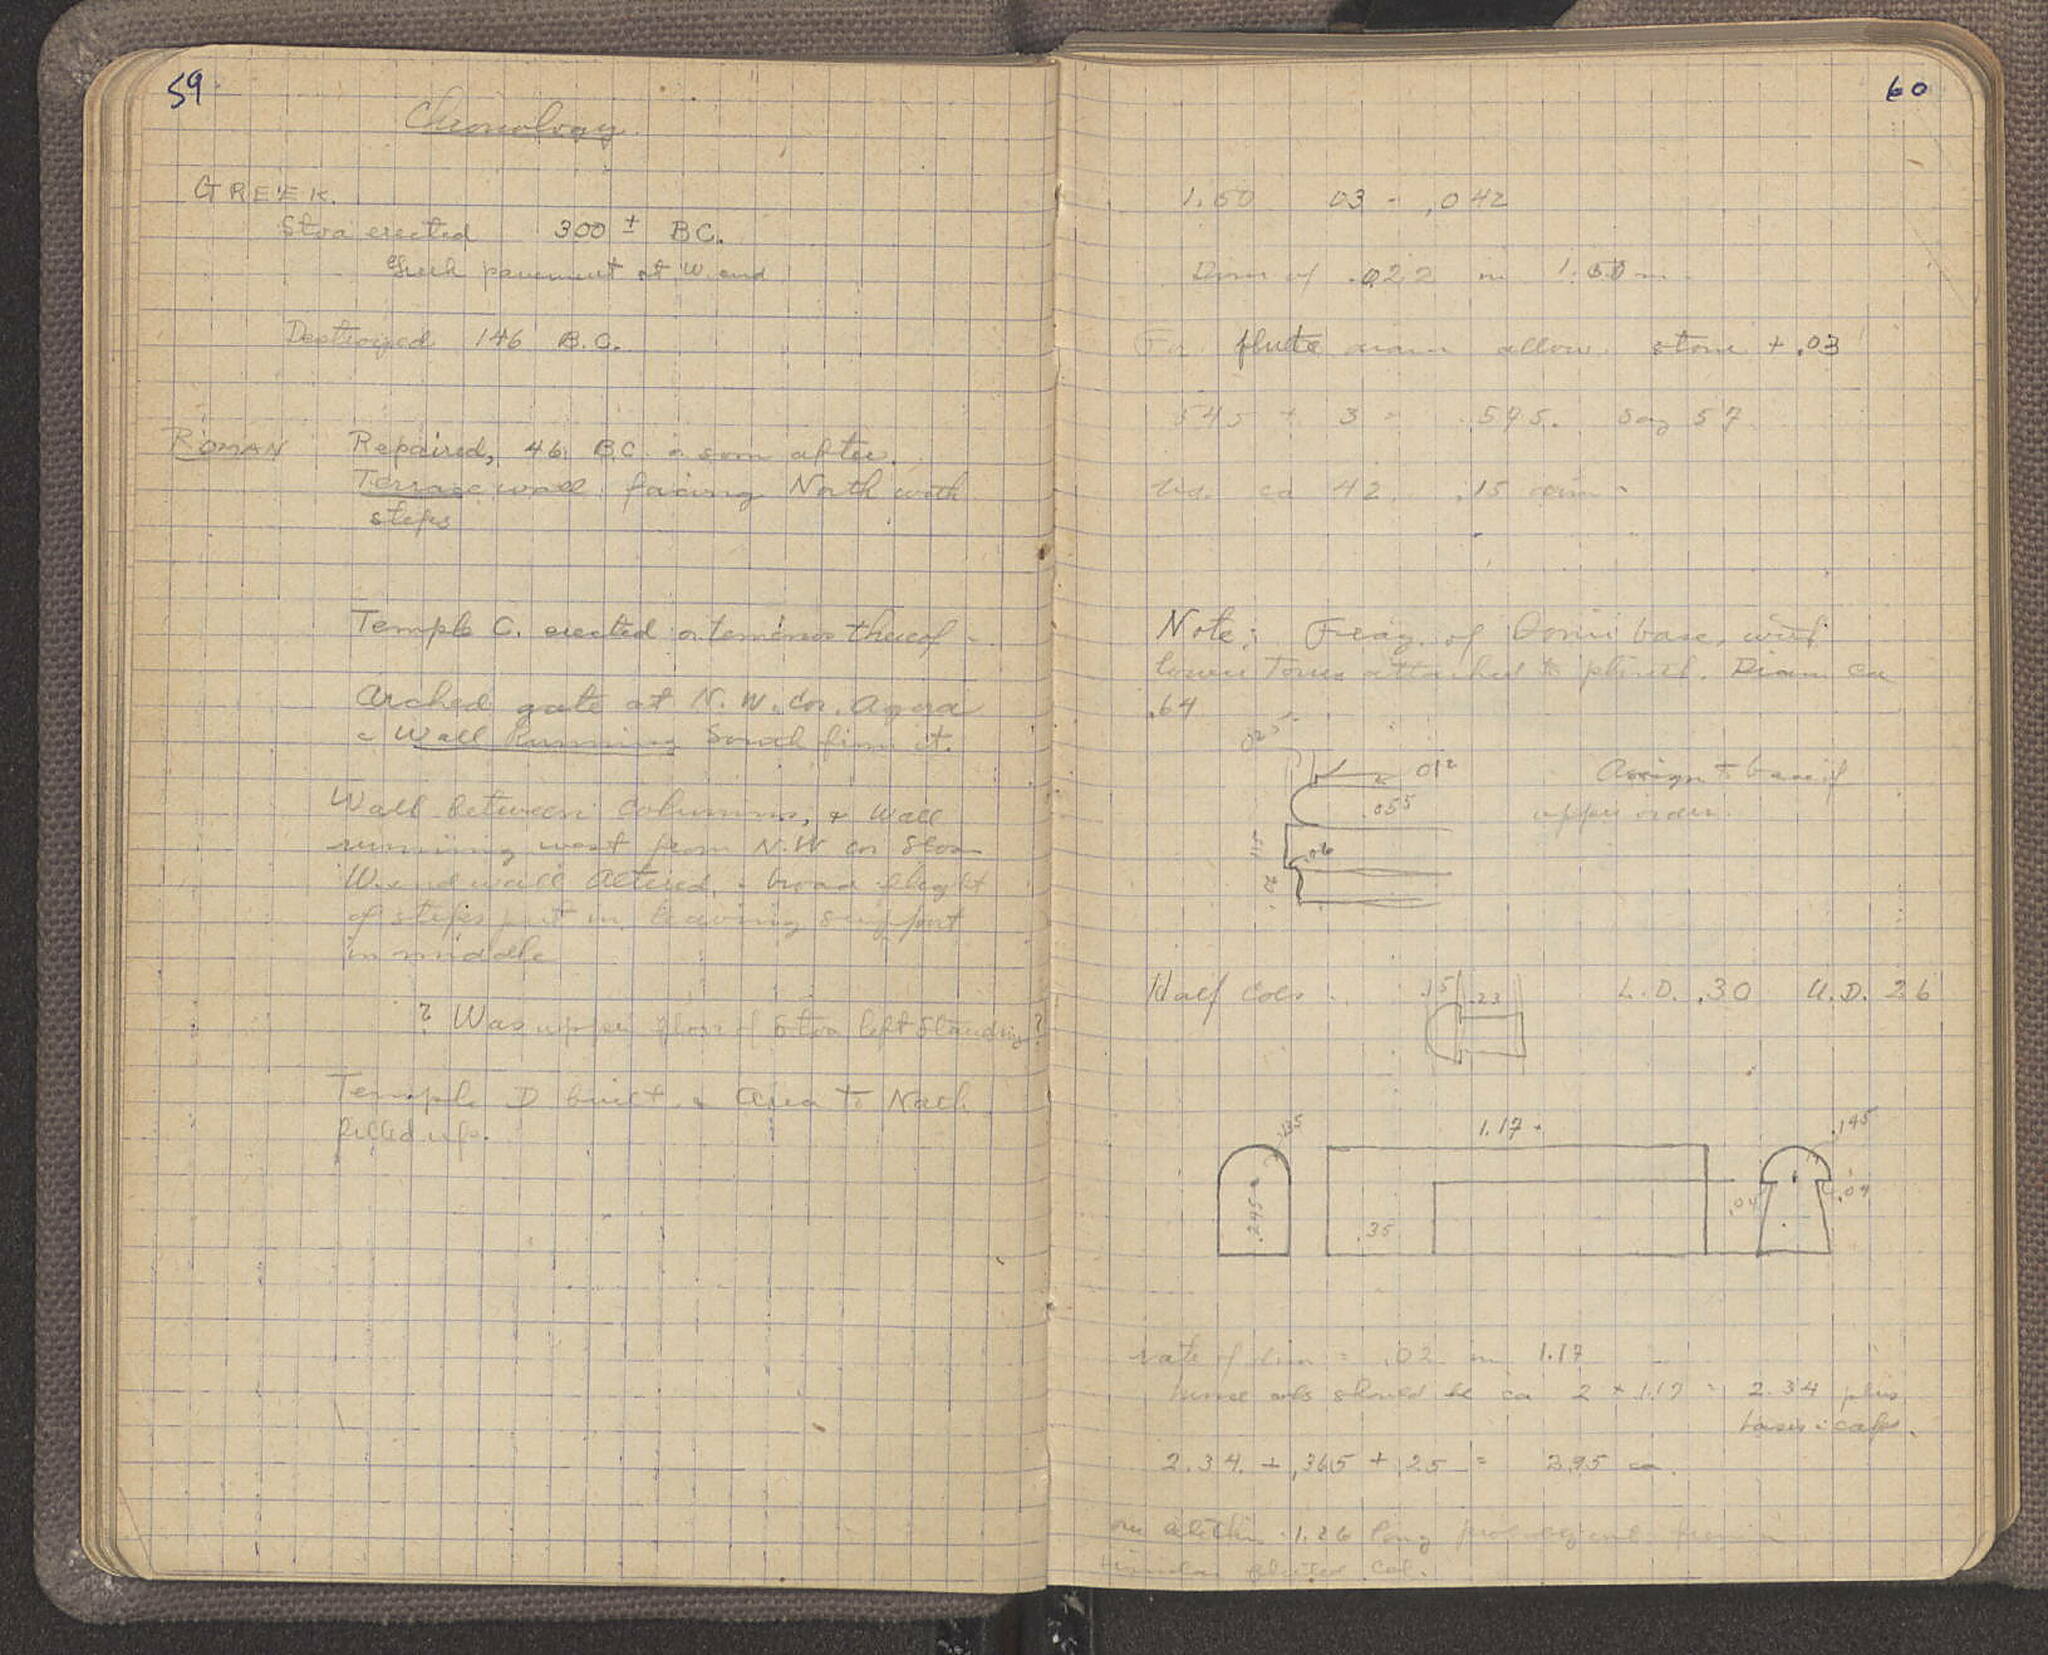 59
Chronology
GREEK.
Stoa erected 300 ± B.C.
Greek pavement at W. end
Destroyed 146 B.C.
ROMAN Repaired, 46 B.C. or soon after.
Terrace wall facing North with
steps
Temple C. erected temenos thereof -
Arched gate at N.W. Cor. Agora
Wall Running South from it.
Wall between columns, + Wall
running west from N.W cor Stoa
W. end wall altered, broad flight
of steps put in leaving support
in middle
? Was upper floor of Stoa left standing?
Temple D built & area to North
filled up.
60
1.50 03 - .042
Dim of .022 in 1.50 m.
For flute diam allow stone + .03
545 + 3 = .575. Say 57
ca 42. .15 dim.
Note: Frag. of Doric base, with
lower Torus attached to plinth. Diam ca
.64
025
012
.055
.06
Assign to base of
upper order.
Half cols. .15 .23 L.D. .30 U.D. 26
.135 1.17 .145
.245 .35 .04 .04
rate of dim = .02 in 1.17
hence cols should be ca 2 × 1.17 = 2.34 plus
bases & caps.
2.34 + .365 + .25 = 2.95 ca.
1.26 long
fluted col.